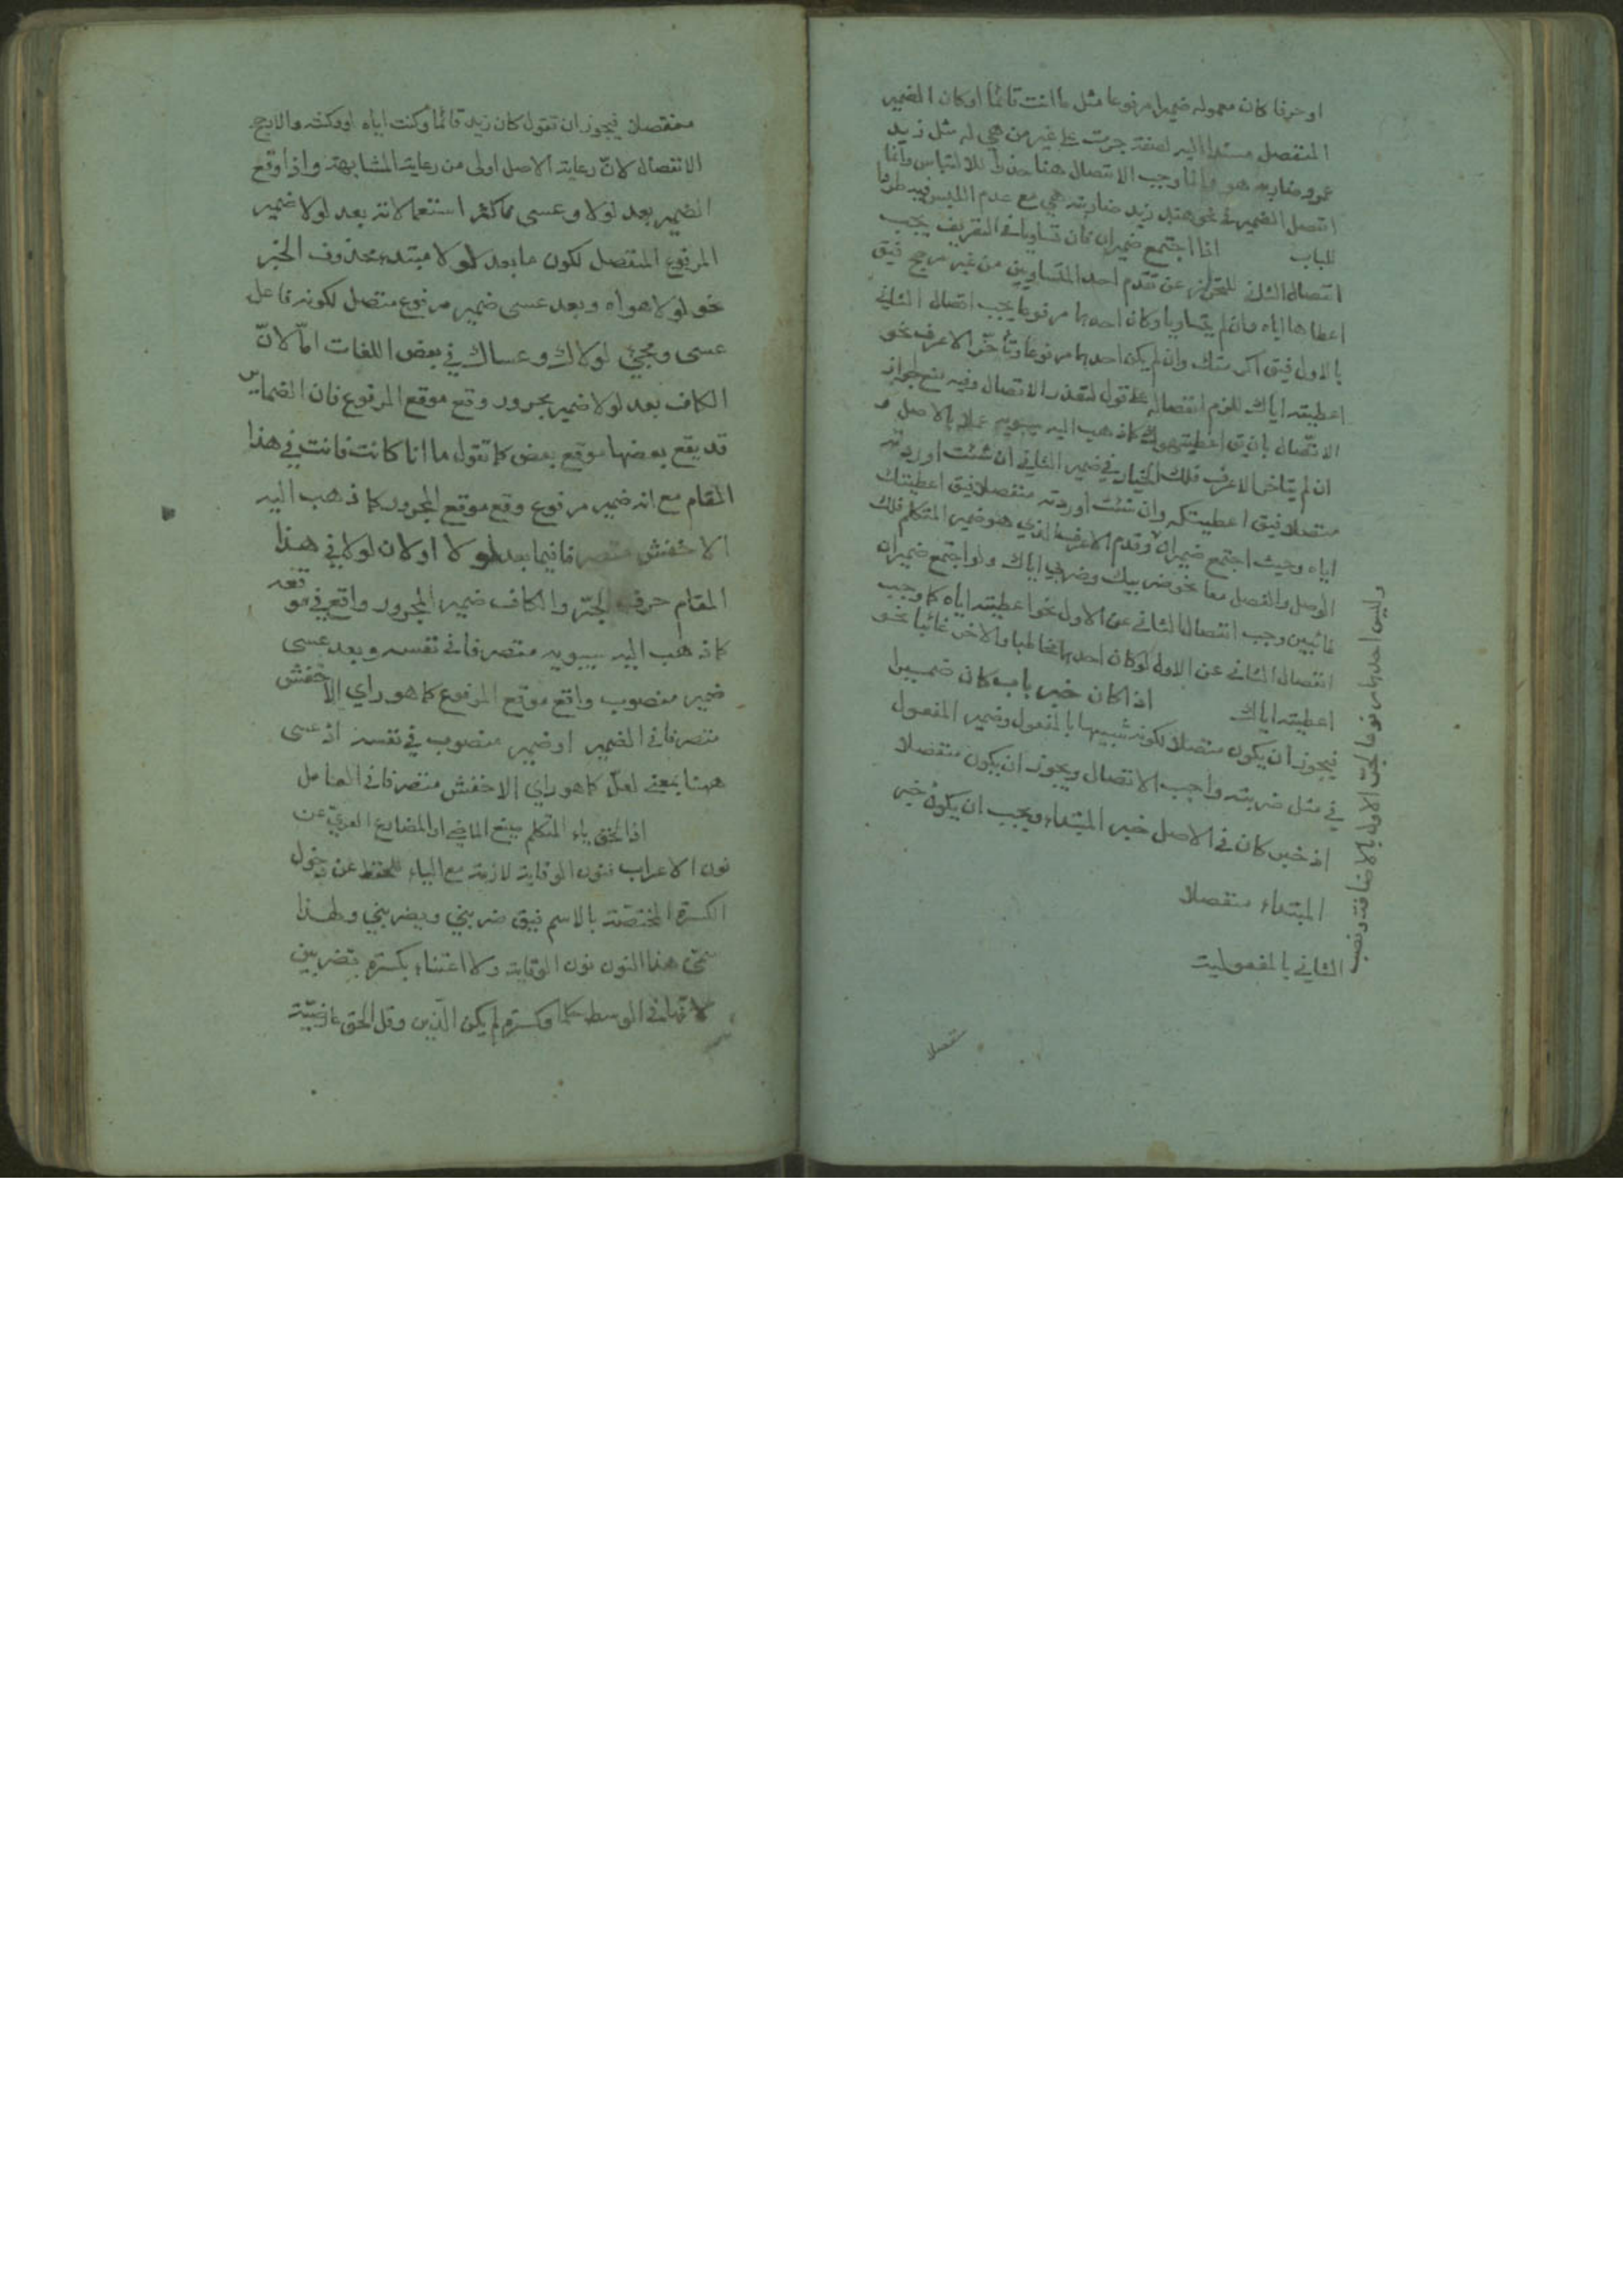 او حرفا كان معموله ضميرا مرفوعا مثل ما انت قائما او كان الضمير
المنفصل مسندا اليه لصفة جرت على غير من هي له مثل زيد
عمرو ضاربه هو وانما وجب الانفصال هنا حذرا للالتباس وانما
انفصل الضمير في نحو هند زيد ضاربته هي مع عدم اللبس فيه طردا
للباب اذا اجتمع ضميران فان تساويا في التعريف يجب
انفصال الثاني للتحرز عن تقدم احد المتساويين من غير مرجح فيق
اعطاها اياه وان لم يتساويا وكان احدهما مرفوعا يجب اتصال الثاني
بالاول فيق اكرمتك وان لم يكن احدهما مرفوعا وتأخر الاعرف نحو
اعطيته اياك للزم انفصاله على قول لتعذر الاتصال وفيه منع لجواز
الاتصال بان يق اعطيتهوك كما ذهب اليه سيبويه عملا بالاصل و
ان لم يتاخر الاعرف فلك الخيار في ضمير الثاني ان شئت اوردته
متصلا فيق اعطيتكه وان شئت اوردته منفصلا فيق اعطيتك
اياه وحيث اجتمع ضميران وقدم الاعرف الذي هو ضمير المتكلم فلك
الوصل والفصل معا نحو ضربيك وضربي اياك ولو اجتمع ضميران
غائبين وجب انفصال الثاني عن الاول نحو اعطيته اياه كما وجب
انفصال الثاني عن الاول لو كان احدهما مخاطبا والاخر غائبا نحو
اعطيته اياك اذا كان خبر باب كان ضميرا
فيجوز ان يكون متصلا لكونه شبيها بالمفعول وضمير المفعول
في مثل ضربته واجب الاتصال ويجوز ان يكون منفصلا
اذ خبر كان في الاصل خبر المبتداء ويجب ان يكون خبر
المبتداء منفصلا
وليس احدهما مرفوعا لجر الاول بالاضافة ونصب
الثاني بالمفعولية
منفصلا
منفصلا فيجوز ان تقول كان زيد قائما وكنت اياه او وكنته والارجح
الانفصال لان رعاية الاصل اولى من رعاية المشابهة واذا وقع
الضمير بعد لولا وعسى مما كثر استعمالانه بعد لولا ضمير
المرفوع المنفصل لكون ما بعد لولا مبتدء محذوف الخبر
نحو لولا هو اه وبعد عسى ضمير مرفوع متصل لكونه فاعل
عسى ومجئ لولاك وعساك في بعض اللغات اما لان
الكاف بعد لولا ضمير مجرور وقع موقع المرفوع فان الضماير
قد يقع بعضها موقع بعض كما تقول ما انا كانت فانت في هذا
المقام مع انه ضمير مرفوع وقع موقع المجرور كما ذهب اليه
الاخفش متصرفا فيما بعد لولا او لان لولا في هذا
المقام حرف الجر والكاف ضمير المجرور واقع في موقعه
كما ذهب اليه سيبويه متصرفا في نفسه وبعد عسى
ضمير منصوب واقع موقع المرفوع كما هو راي الاخفش
متصرفا في الضمير او ضمير منصوب في نفسه اذ عسى
ههنا بمعنى لعل كما هو راي الاخفش متصرفا في العامل
اذا لحق ياء المتكلم صيغ الماضي او المضارع العري عن
نون الاعراب فنون الوقاية لازمة مع الياء للحفظ عن دخول
الكسرة المختصة بالاسم فيق ضربني ويضربني ولهذا
سمى هذا النون نون الوقاية ولا اعتناء بكسرة تضربين
لانها في الوسط حكما وكسرة لم يكن الذين وقل الحق عارضية